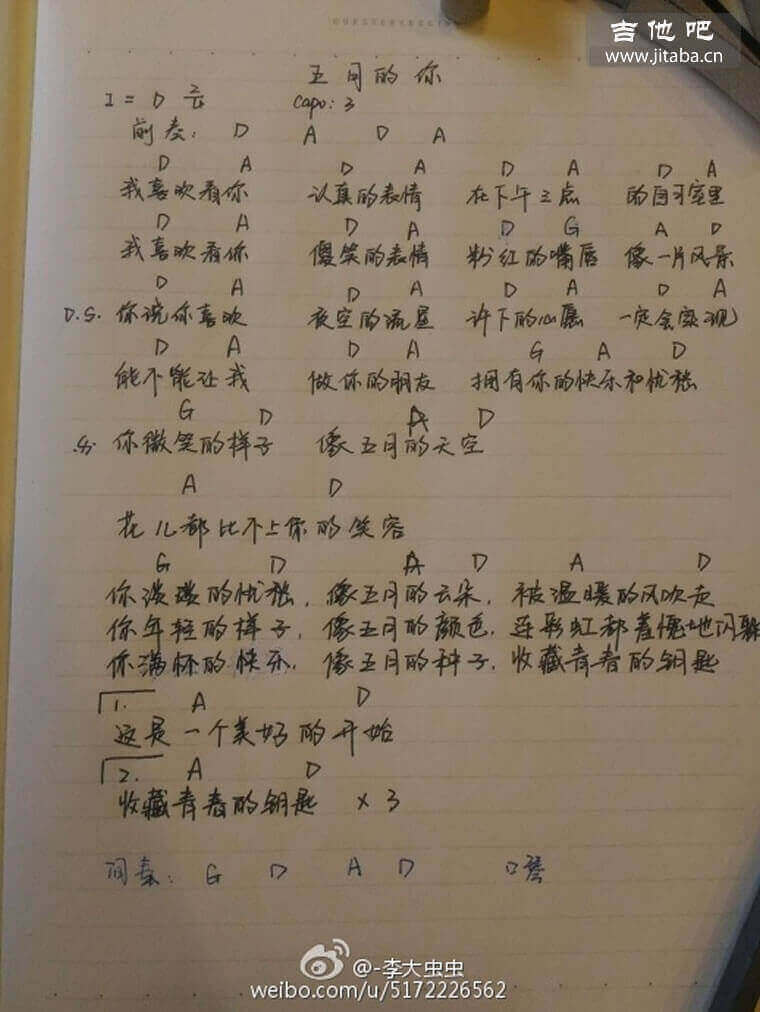 吉他吧
www.jitaba.cn
五月的你
1 = D 2/4 Capo: 3
前奏: D A D A
D A D A D A D A
我喜欢看你 认真的表情 在下午三点 的自习室里
D A D A D G A D
我喜欢看你 傻笑的表情 粉红的嘴唇 像一片风景
D A D A D A D A
D.S. 你说你喜欢 夜空的流星 许下的心愿 一定会实现
D A D A G A D
能不能让我 做你的朋友 拥有你的快乐和忧愁
G D A D
你微笑的样子 像五月的天空
A D
花儿都比不上你的笑容
G D A D A D
你淡淡的忧愁, 像五月的云朵, 被温暖的风吹走
你年轻的样子, 像五月的颜色, 连彩虹都羞愧地闪躲
你满怀的快乐, 像五月的种子, 收藏青春的钥匙
1. A D
这是一个美好的开始
2. A D
收藏青春的钥匙 × 3
间奏: G D A D 口琴
@-李大虫虫
weibo.com/u/5172226562